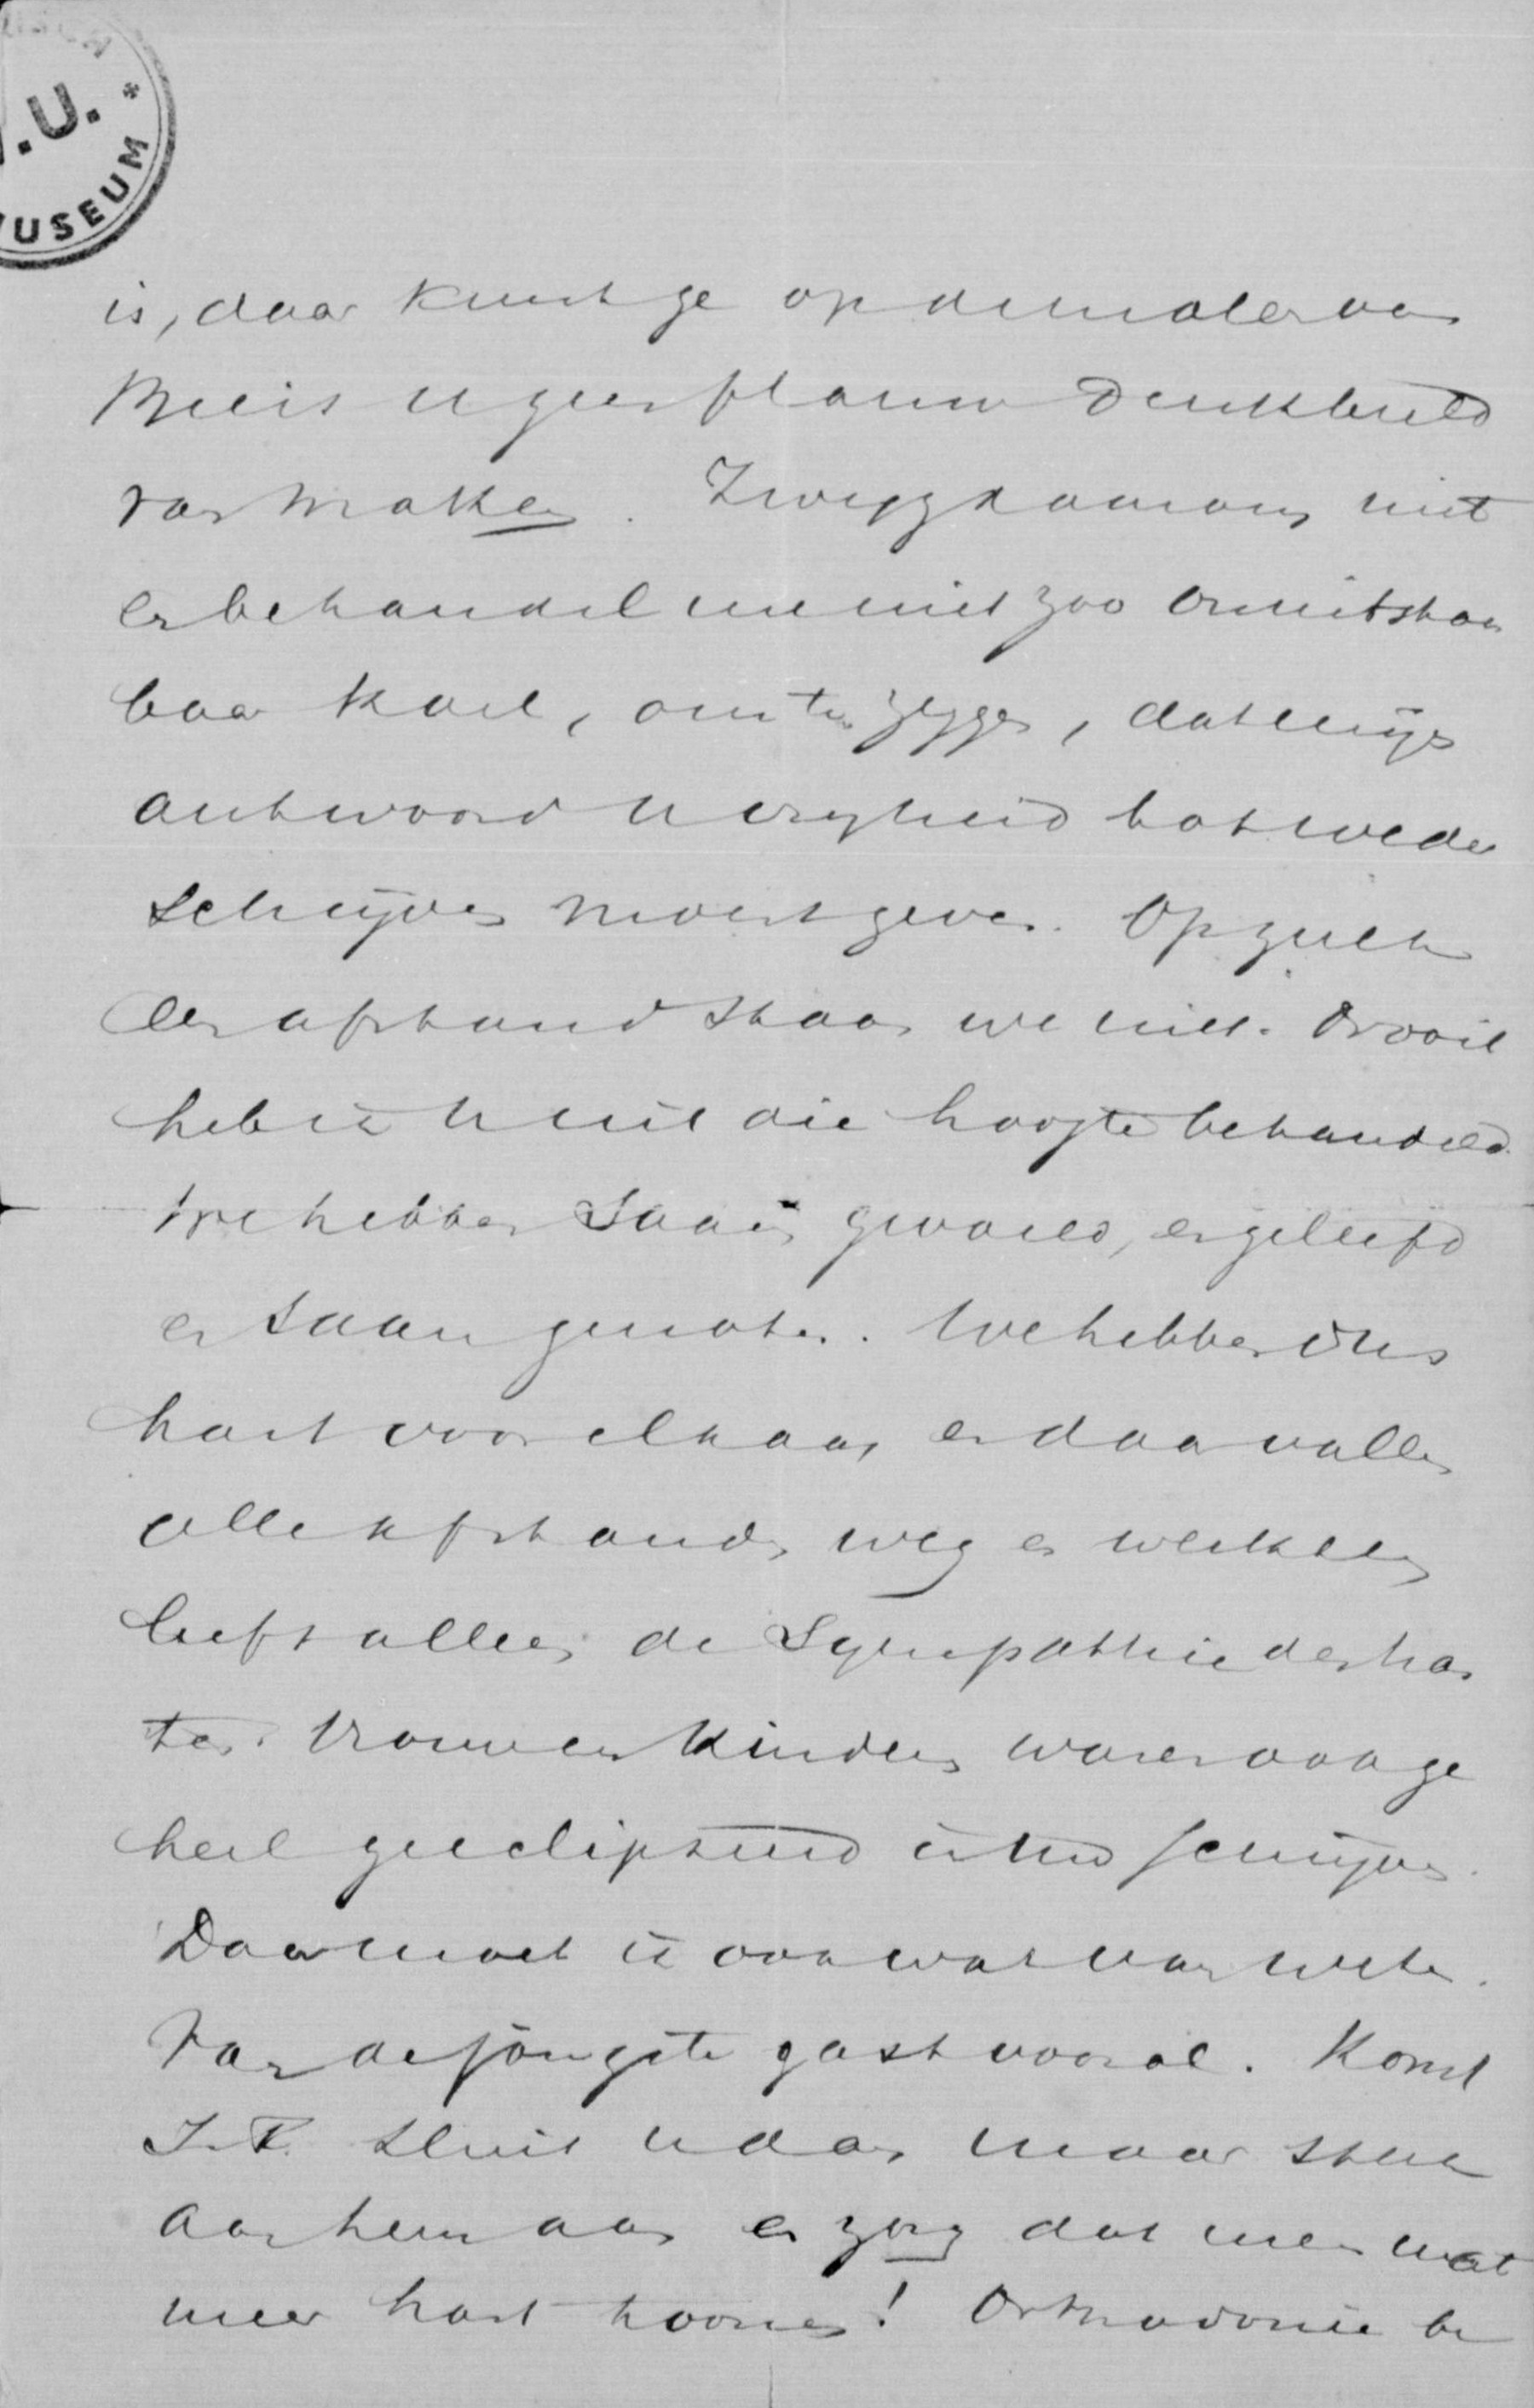 .U.
MUSEUM
is, daar kunt ge op demaler van
Mreis u geen flauw denkbeeld
van maken. Zwijg daarom niet
en behandel me niet zoo onuitstaan
baar koel, om te zeggen, dat mijn
antwoord u vrijheid tot weder
schrijven moest geven. Op zulk
een afstand staan we niet. Nooit
heb ik u uit die hoogte behandeld.
We hebben saam gevoeld, en geleefd
en saam genoten. We hebben ons
hart voor elkaar en daar vallen
alle afstanden weg en werkt en
leeft alleen de sympathie der har
ten. Vrouw en kinders waren ook ge
heel geëclipseerd in uw schrijven.
Daar moet ik ook wat van weten.
Van de jongste gast vooral. Komt
J. T. sluit u dan maar sterk
aan hem aan en zorg dat we wat
meer hart toonen! Orthodoxie be